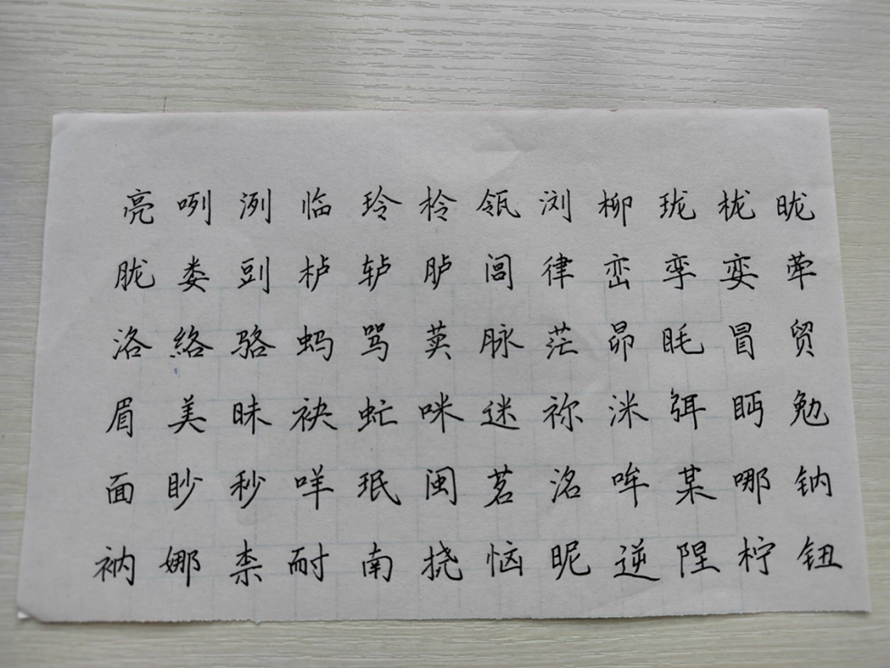 亮咧洌临玲柃瓴浏柳珑栊昽
胧娄剅栌轳胪闾律峦孪奕荦
洛络骆蚂骂荬脉茫昴眊冒贸
眉美昧袂虻咪迷祢洣弭眄勉
面眇秒咩珉闽茗洺哞某哪钠
衲娜柰耐南挠恼昵逆陧柠钮